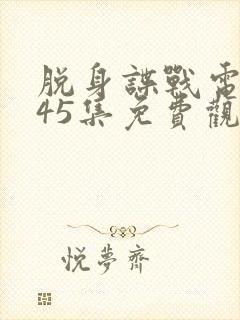 脱身諜戰電
45集免費觀
悦夢齋